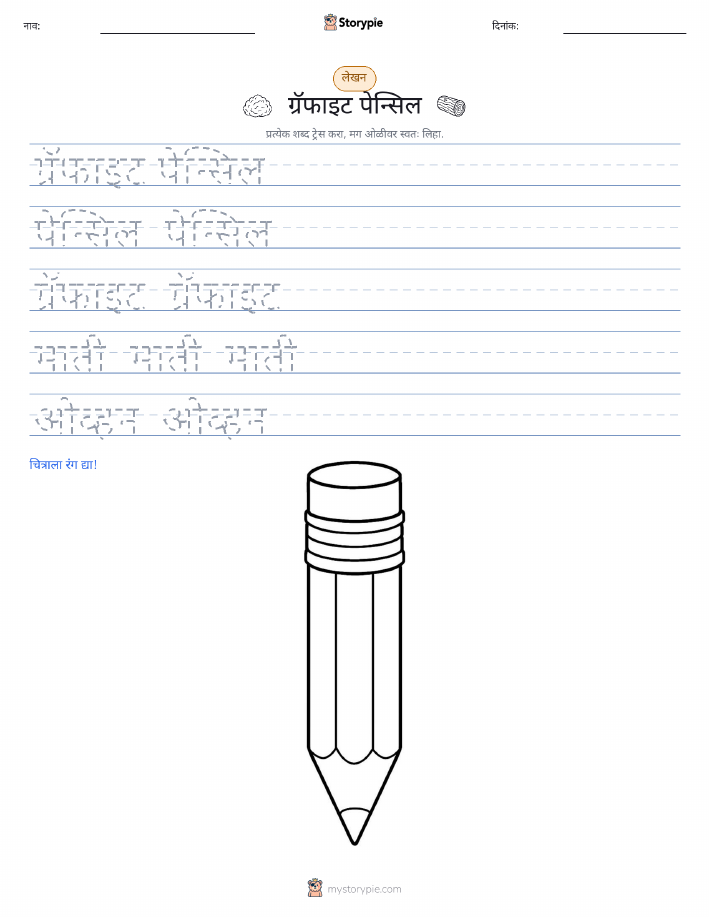 नाव:
Storypie
दिनांक:
लेखन
ग्रॅफाइट पेन्सिल
प्रत्येक शब्द ट्रेस करा, मग ओळीवर स्वतः लिहा.
ग्रॅफाइट पेन्सिल
पेन्सिल पेन्सिल
ग्रॅफाइट ग्रॅफाइट
माती माती माती
ओव्हन ओव्हन
चित्राला रंग द्या!
mystorypie.com